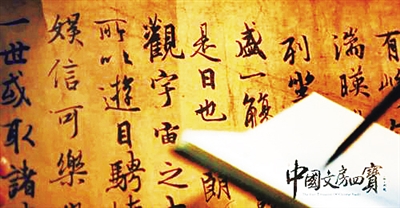 有
湍暎
列坐
盛一觴
是日也
朗
觀宇宙之
所以遊目騁
娛信可樂
一世或取諸
中國文房四寶